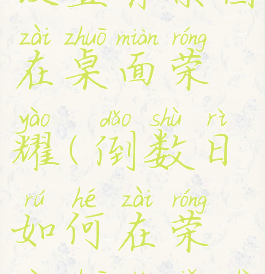 zài zhuō miàn róng
在桌面荣
yào dǎo shù rì
耀(倒数日
rú hé zài róng
如何在荣